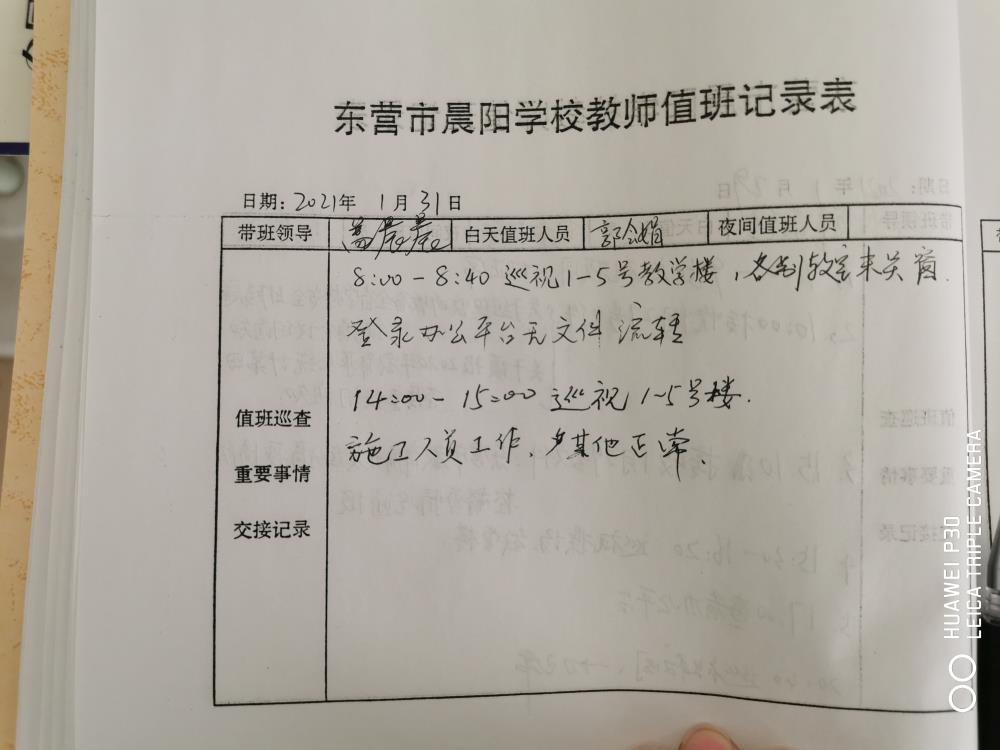 东营市晨阳学校教师值班记录表
日期：2021年 1月 31日
带班领导 晨晨 白天值班人员 郭会娟 夜间值班人员
8:00-8:40 巡视1-5号教学楼，教室未关窗
登录办公平台无文件流转
14:00-15:00 巡视1-5号楼.
施工人员工作、其他正常、
值班巡查
重要事情
交接记录
HUAWEI P30
LEICA TRIPLE CAMERA